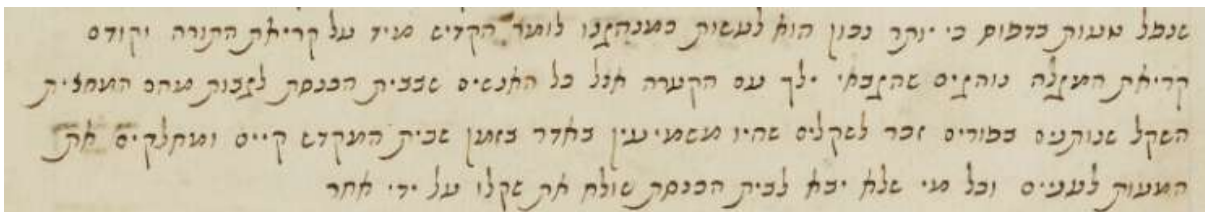 שנפל טעות בדפוס כי יותר נכון הוא לעשות כמנהגנו לומר הקדיש מיד על קריאת התורה וקודם
קריאת המגלה נוהגים שהגבאי ילך עם הקערה אצל כל האנשים שבבית הכנסת לגבות מהם המחצית
השקל שנותנים בפורים זכר לשקלים שהיו משמיעין באדר בזמן שבית המקדש קיים ומחלקים את
המעות לעניים וכל מי שלא יבא לבית הכנסת שולח את שקלו על ידי אחר